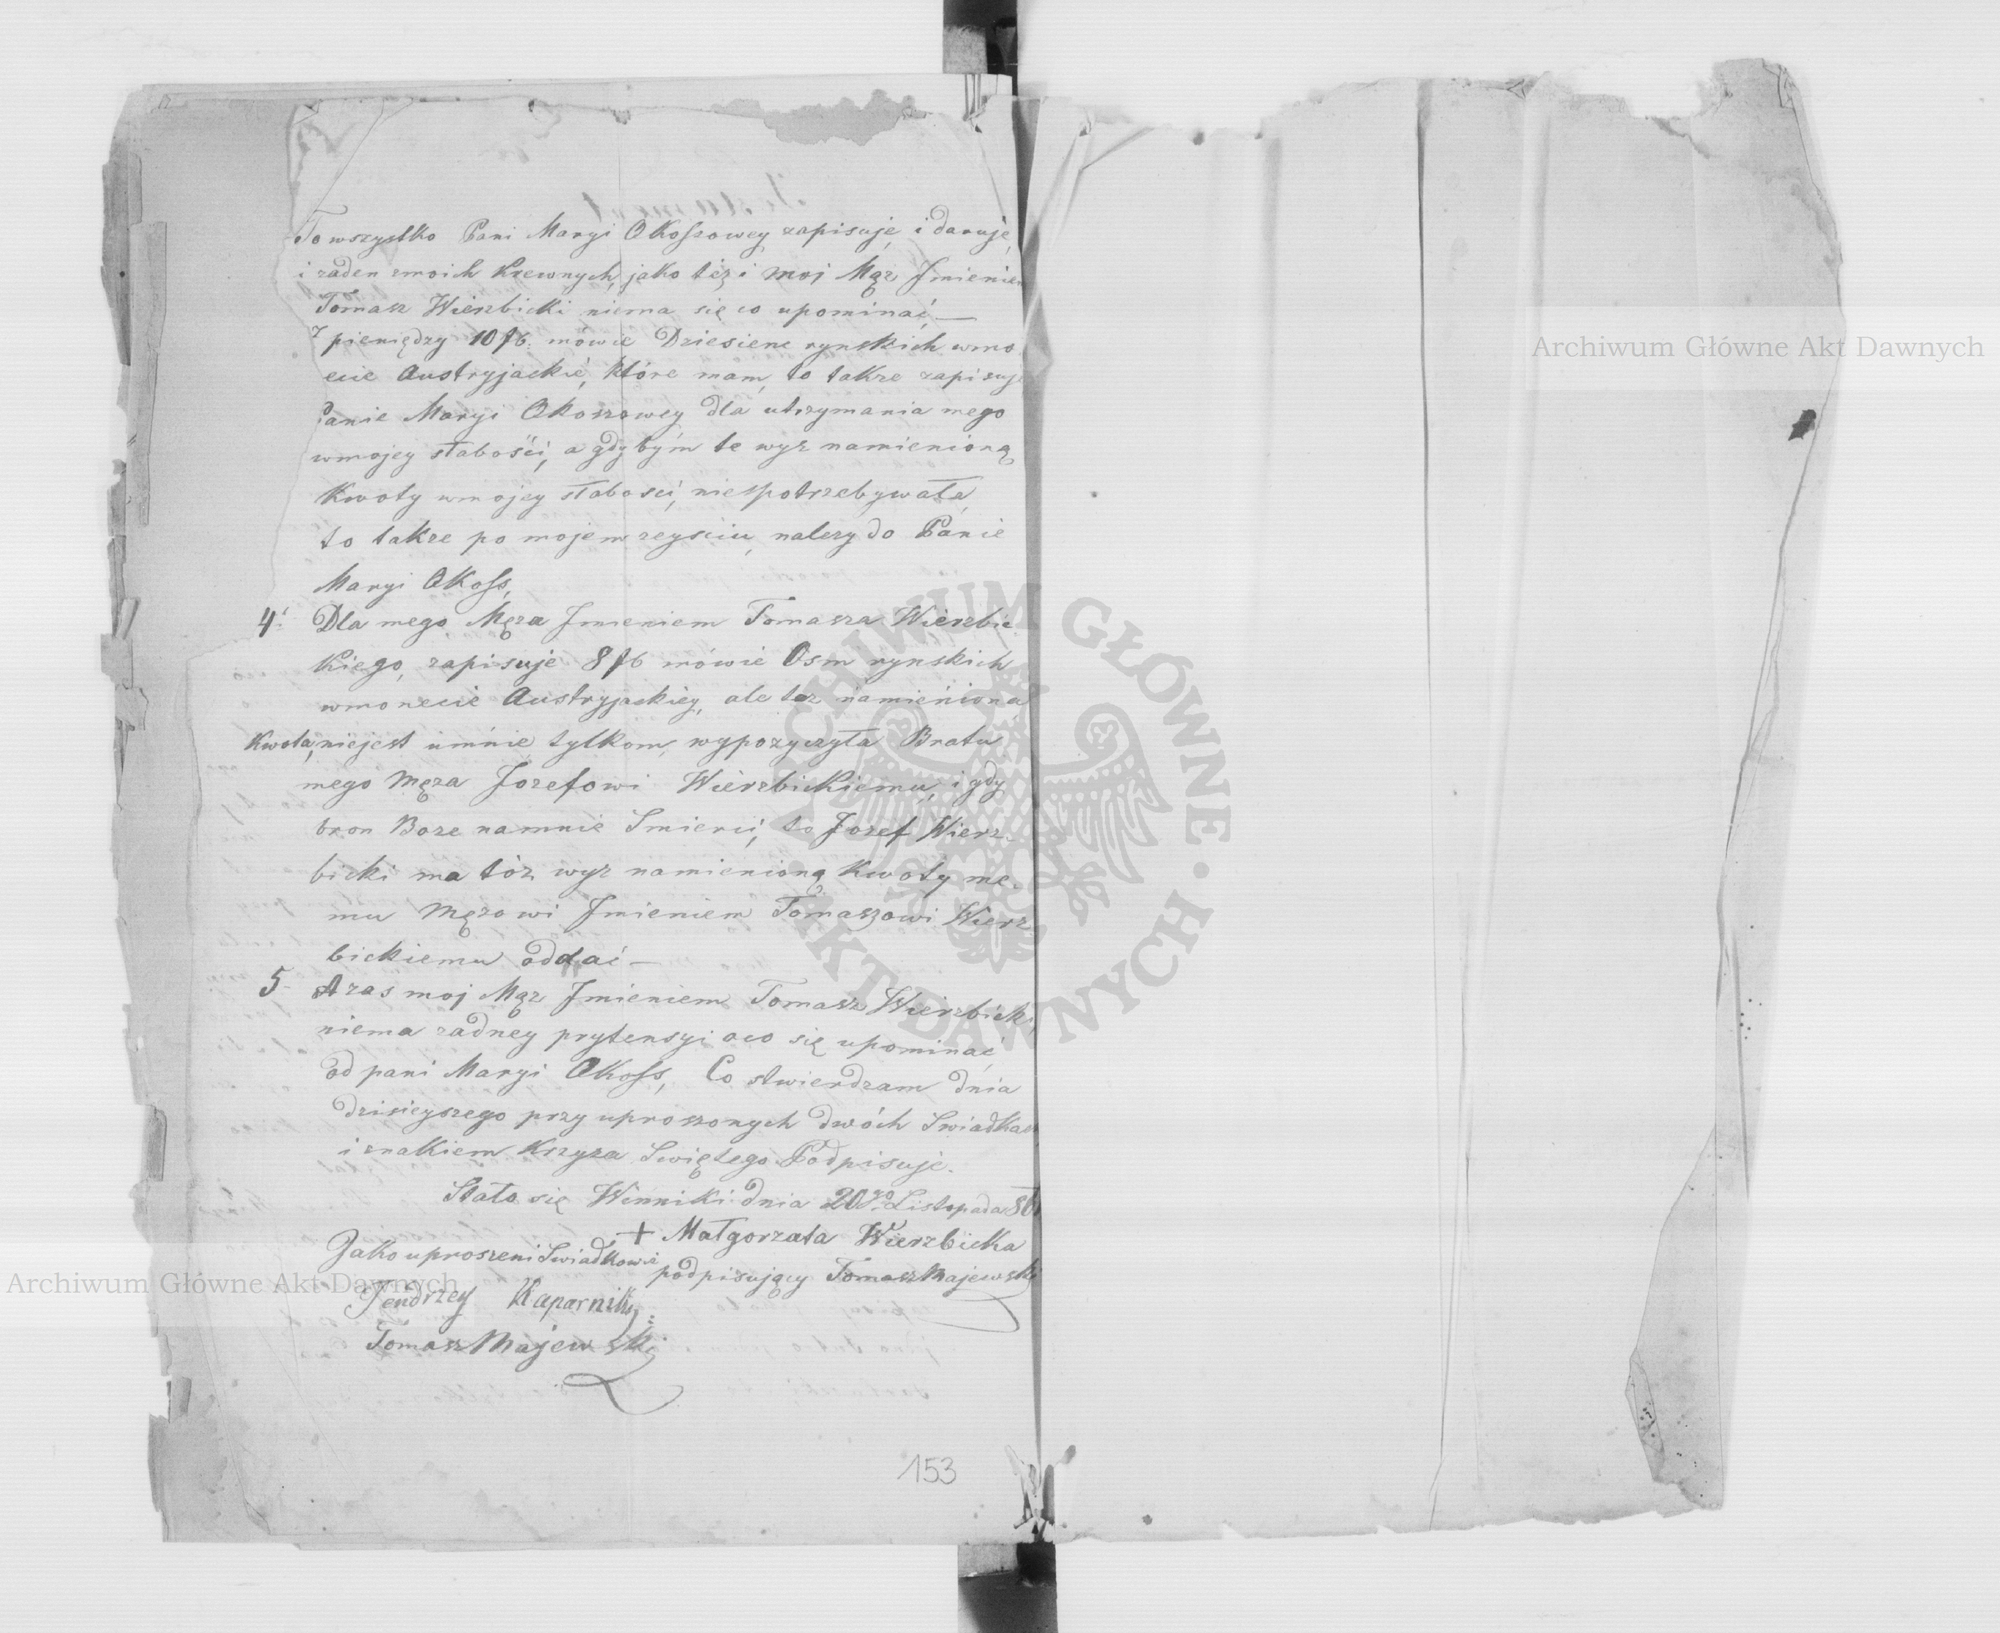 To wszystko Pani Maryi Okossowey zapisuje, i daruje,
i zaden zmoich Krewnych, jako też i moj Mąz Jmieniem
Tomasz Wierzbicki niema się co upominać, —
z pieniędzy 10 f6: mówie Dziesienc rynskich wmo
necie Austryjackié, które mam, to takze zapisuje
Panie Maryi Okoszowey dla utrzymania mego
wmojey słabości, a gdybym te wyz namienioną
Kwoty wmojey słabości, niespotrzebywała,
to takze po mojem zeysciu, nalezy do Panie
Maryi Okoss,
4. Dla mego Męza Jmieniem Tomasza Wierzbic
kiego, zapisuje 8 f6 mówie Osm rynskich
wmonecie Austryjackiey, ale taz namieniona
Kwota, niejest umnie tylkom, wypozyczyła Bratu
mego Męza Jozefowi Wierzbickiemu, i gdy
bron Boze namnie Smierci, to Jozef Wierz
bicki ma tóż wyz namienioną Kwoty me-
mu Męzowi Jmieniem Tomaszowi Wierz
bickiemu oddać —
5- A zas moj Mąz Jmieniem Tomasz Wierzbicki
niema zadney prytensyi oco się upominać
od pani Maryi Okoss, Co stwierdzam dnia
dzisieyszego przy uproszonych dwóch Swiadkach
i znakiem Krzyza Swiętego Podpisuje.
Stało się Winniki dnia 20go Listopada
+ Małgorzata Wierzbicka
Jako uproszeni Swiadkowie podpisujący Tomasz Majewski
Jendrzey Kaparniky
Tomasz Majewski
153
Archiwum Główne Akt Dawnych
Archiwum Główne Akt Dawnych
ARCHIWUM GŁÓWNE AKT DAWNYCH